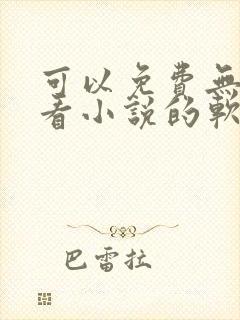 可以免費無
看小說的軟
巴雷拉